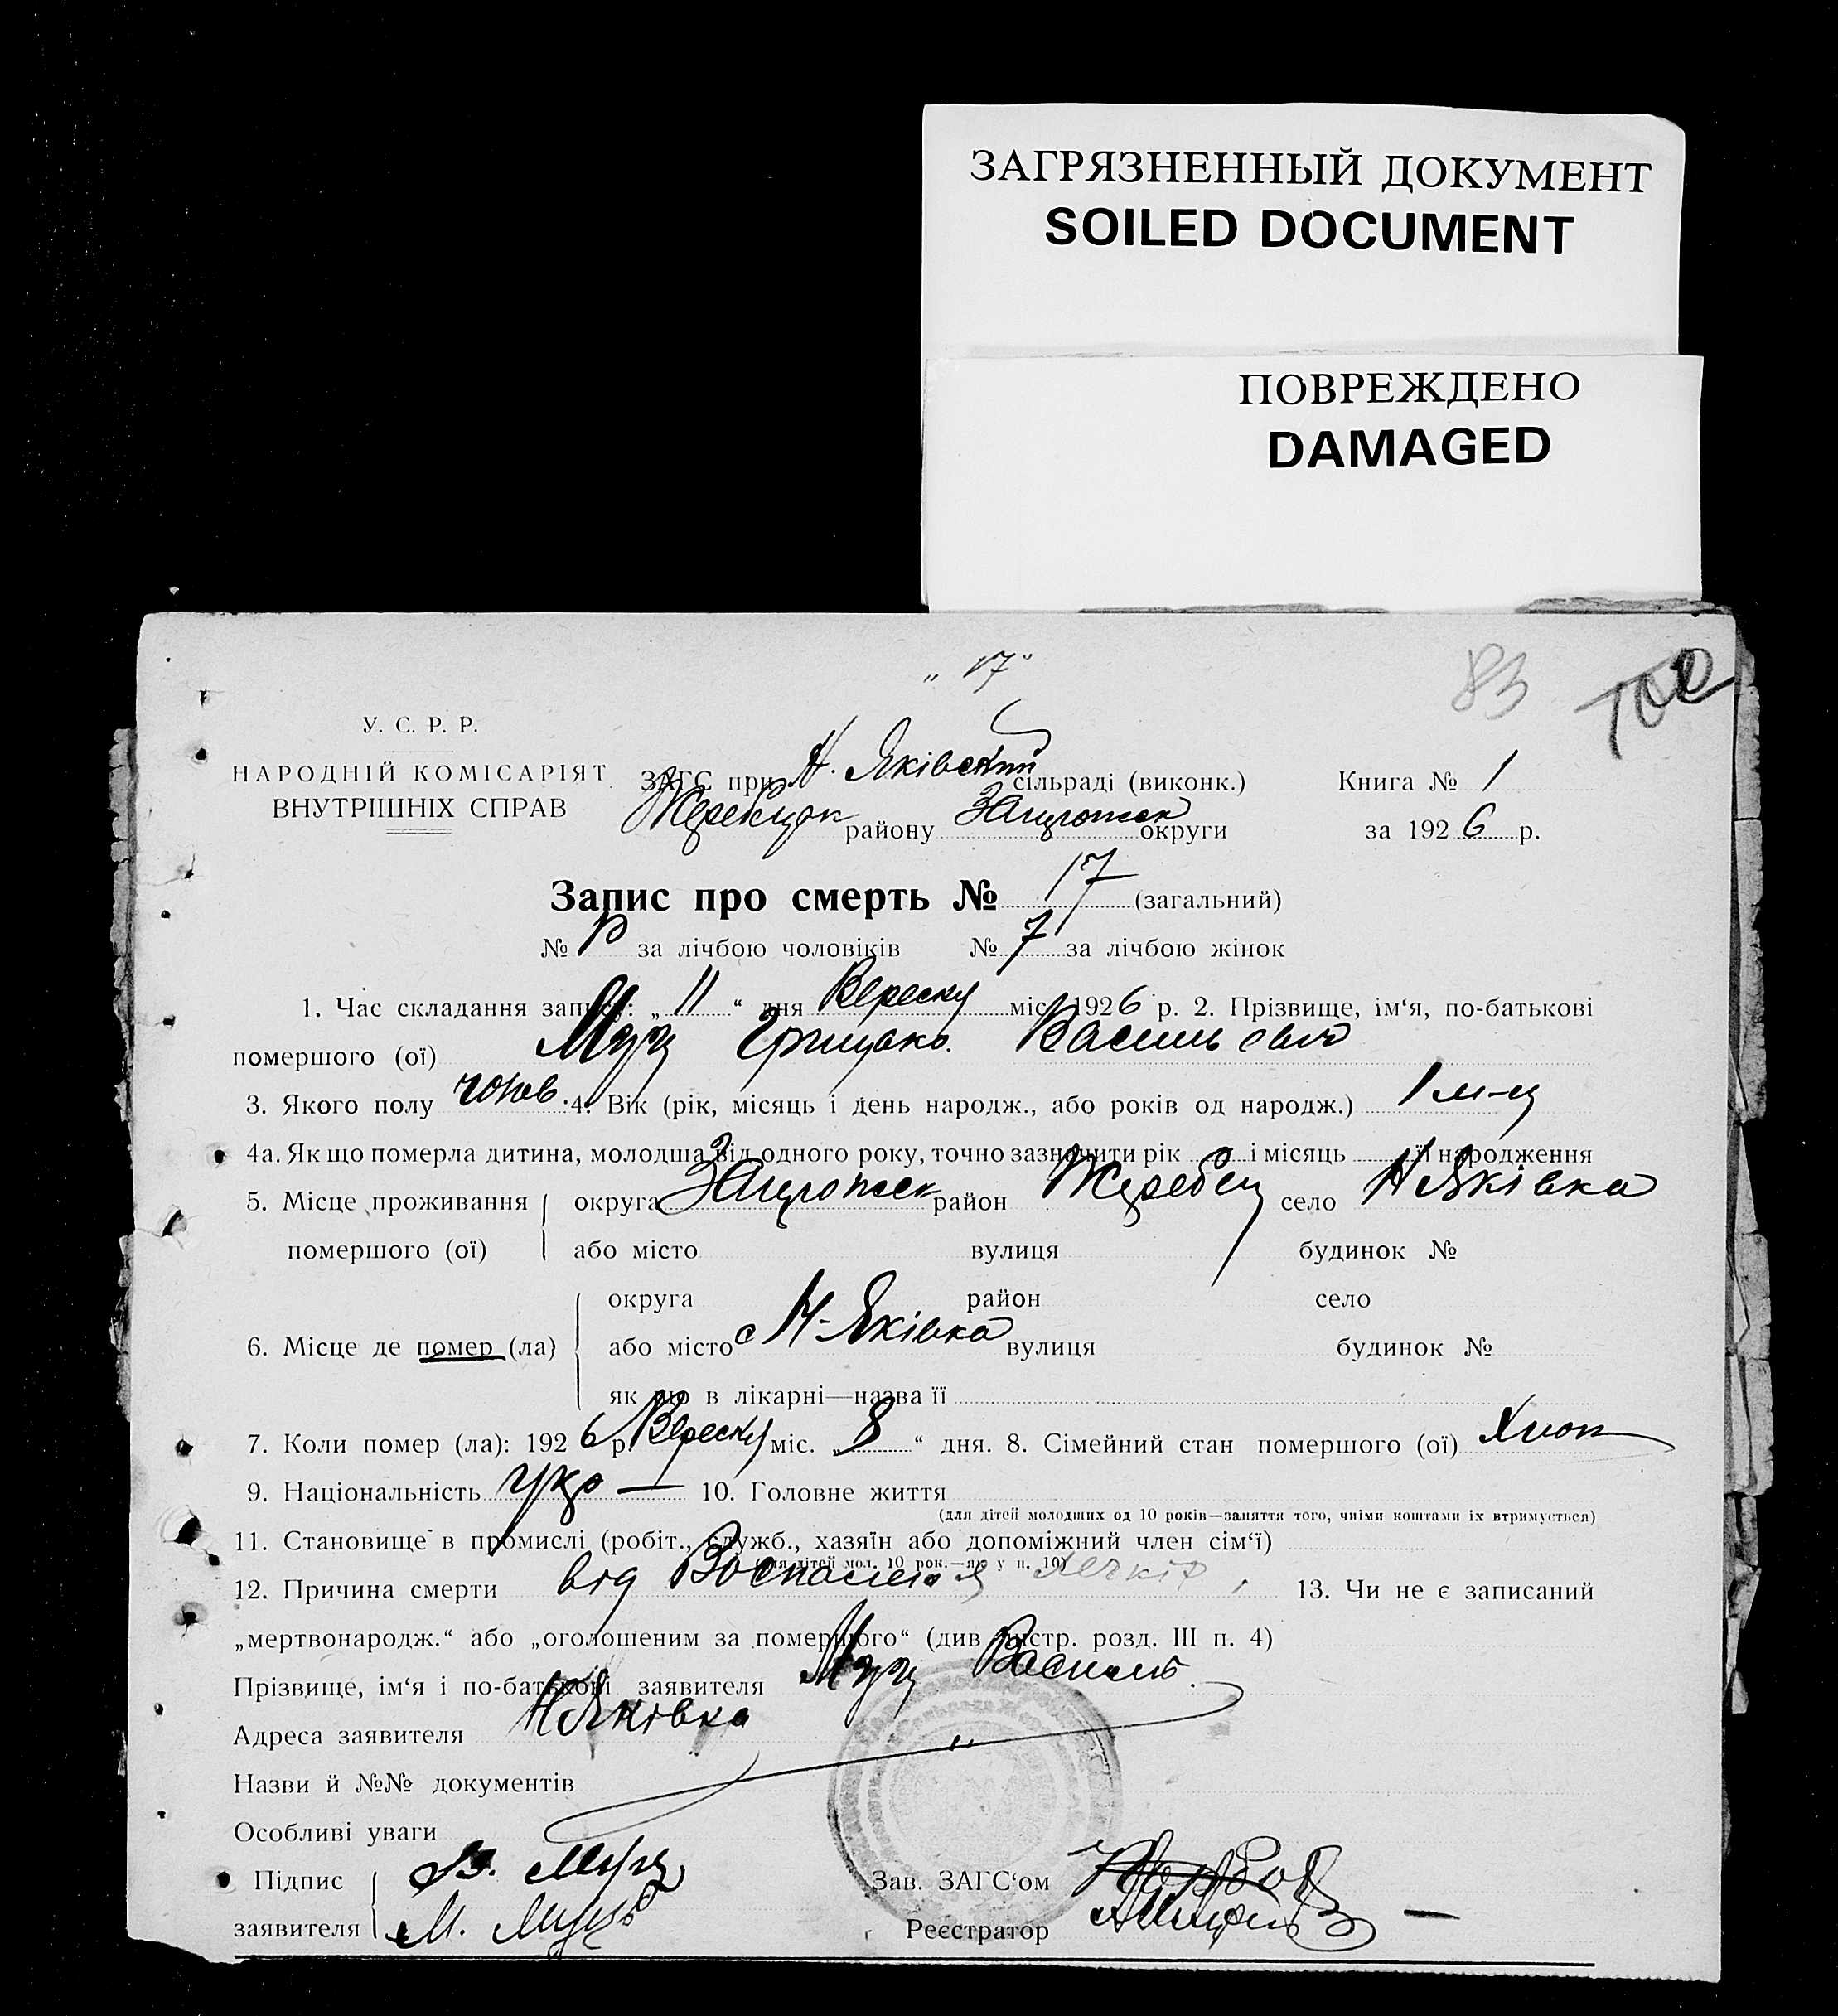 ЗАГРЯЗНЕННЫЙ ДОКУМЕНТ
SOILED DOCUMENT
ПОВРЕЖДЕНО
DAMAGED
„ 17 "
83
У. С. Р. Р.
НАРОДНІЙ КОМІСАРІЯТ
ВНУТРІШНІХ СПРАВ
ЗАГС при Н. Яківській сільраді (виконк.) Книга № 1
району округи за 1926 р.
Запис про смерть № 17 (загальний)
№ за лічбою чоловіків № 7 за лічбою жінок
1. Час складання запису: „ 11 “ дня Вересня міс. 1926 р. 2. Прізвище, ім‘я, по-батькові
помершого (ої) Грицько Васильович
3. Якого полу чолов. 4. Вік (рік, місяць і день народж., або років од народж.) 1 м-ц
4а. Як що померла дитина, молодша від одного року, точно зазначити рік і місяць її народження
5. Місце проживання округа район Жеребец село Н Яківка
помершого (ої) або місто вулиця будинок №
округа район село
6. Місце де помер (ла) або місто с Н-Яківка вулиця будинок №
як що в лікарні—назва її
7. Коли помер (ла): 1926 р. Вересня міс. „ 8 “ дня. 8. Сімейний стан помершого (ої)
9. Національність укр — 10. Головне життя
(для дітей молодших од 10 років—заняття того, чиїми коштами їх втримується)
11. Становище в промислі (робіт., служб., хазяїн або допоміжний член сім‘ї)
(для дітей мол. 10 рок.—як у п. 10)
12. Причина смерти від Воспаления 13. Чи не є записаний
„мертвонародж.“ або „оголошеним за помершого“ (див інстр. розд. III п. 4)
Прізвище, ім‘я і по-батькові заявителя Василь
Адреса заявителя Н Яківка
Назви й №№ документів
Особливі уваги
Підпис В. Зав. ЗАГС‘ом
заявителя М. Реєстратор